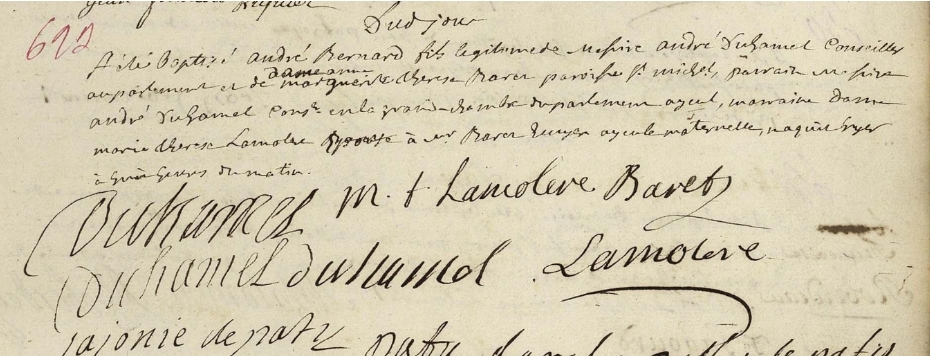 Dud jour
692
A été Baptisé andré Bernard fils legitime de Messire andré Duhamel Conseiller
au parlement et de dame anne marguerite therese Baret paroisse st michel, parrain messire
andré Duhamel Conser en la grand chambre du parlement ayeul, marraine Dame
marie therese Lamolere à mr Baret Ecuyer ayeule maternelle, naquit hyer
à heures du matin.
Duhamel M. t Lamolere Baret
Duhamel duhamel Lamolere
de paty